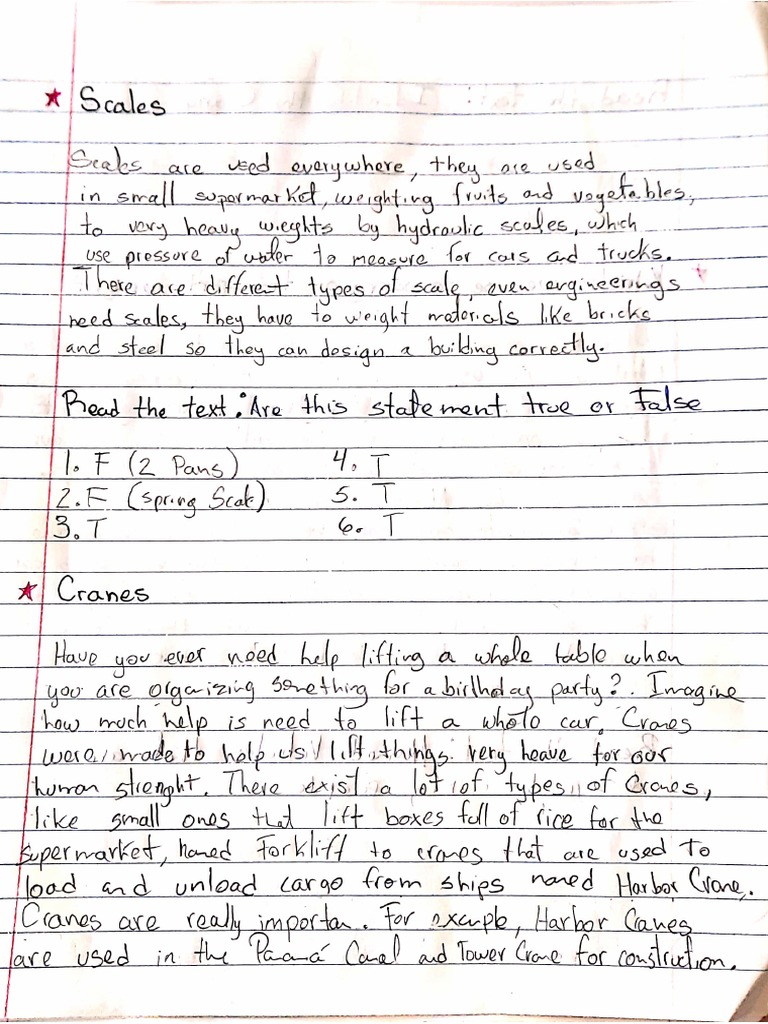 ★ Scales
Scales are used everywhere, they are used
in small supermarket, weighting fruits and vegetables,
to very heavy wieghts by hydraulic scales, which
use pressure of water to measure for cars and trucks.
There are different types of scale, even engineerings
need scales, they have to weight materials like bricks
and steel so they can design a building correctly.
Read the text: Are this statement true or False
1. F (2 Pans) 4. T
2. F (spring Scale) 5. T
3. T 6. T
★ Cranes
Have you ever need help lifting a whole table when
you are organizing something for a birthday party?. Imagine
how much help is need to lift a whole car. Cranes
were made to help us lift things very heave for our
human strenght. There exist a lot of types of Cranes,
like small ones that lift boxes full of rice for the
supermarket, named Forklift to cranes that are used to
load and unload cargo from ships named Harbor Crane.
Cranes are really importan. For example, Harbor Canes
are used in the Panamá Canal and Tower Crane for construction.